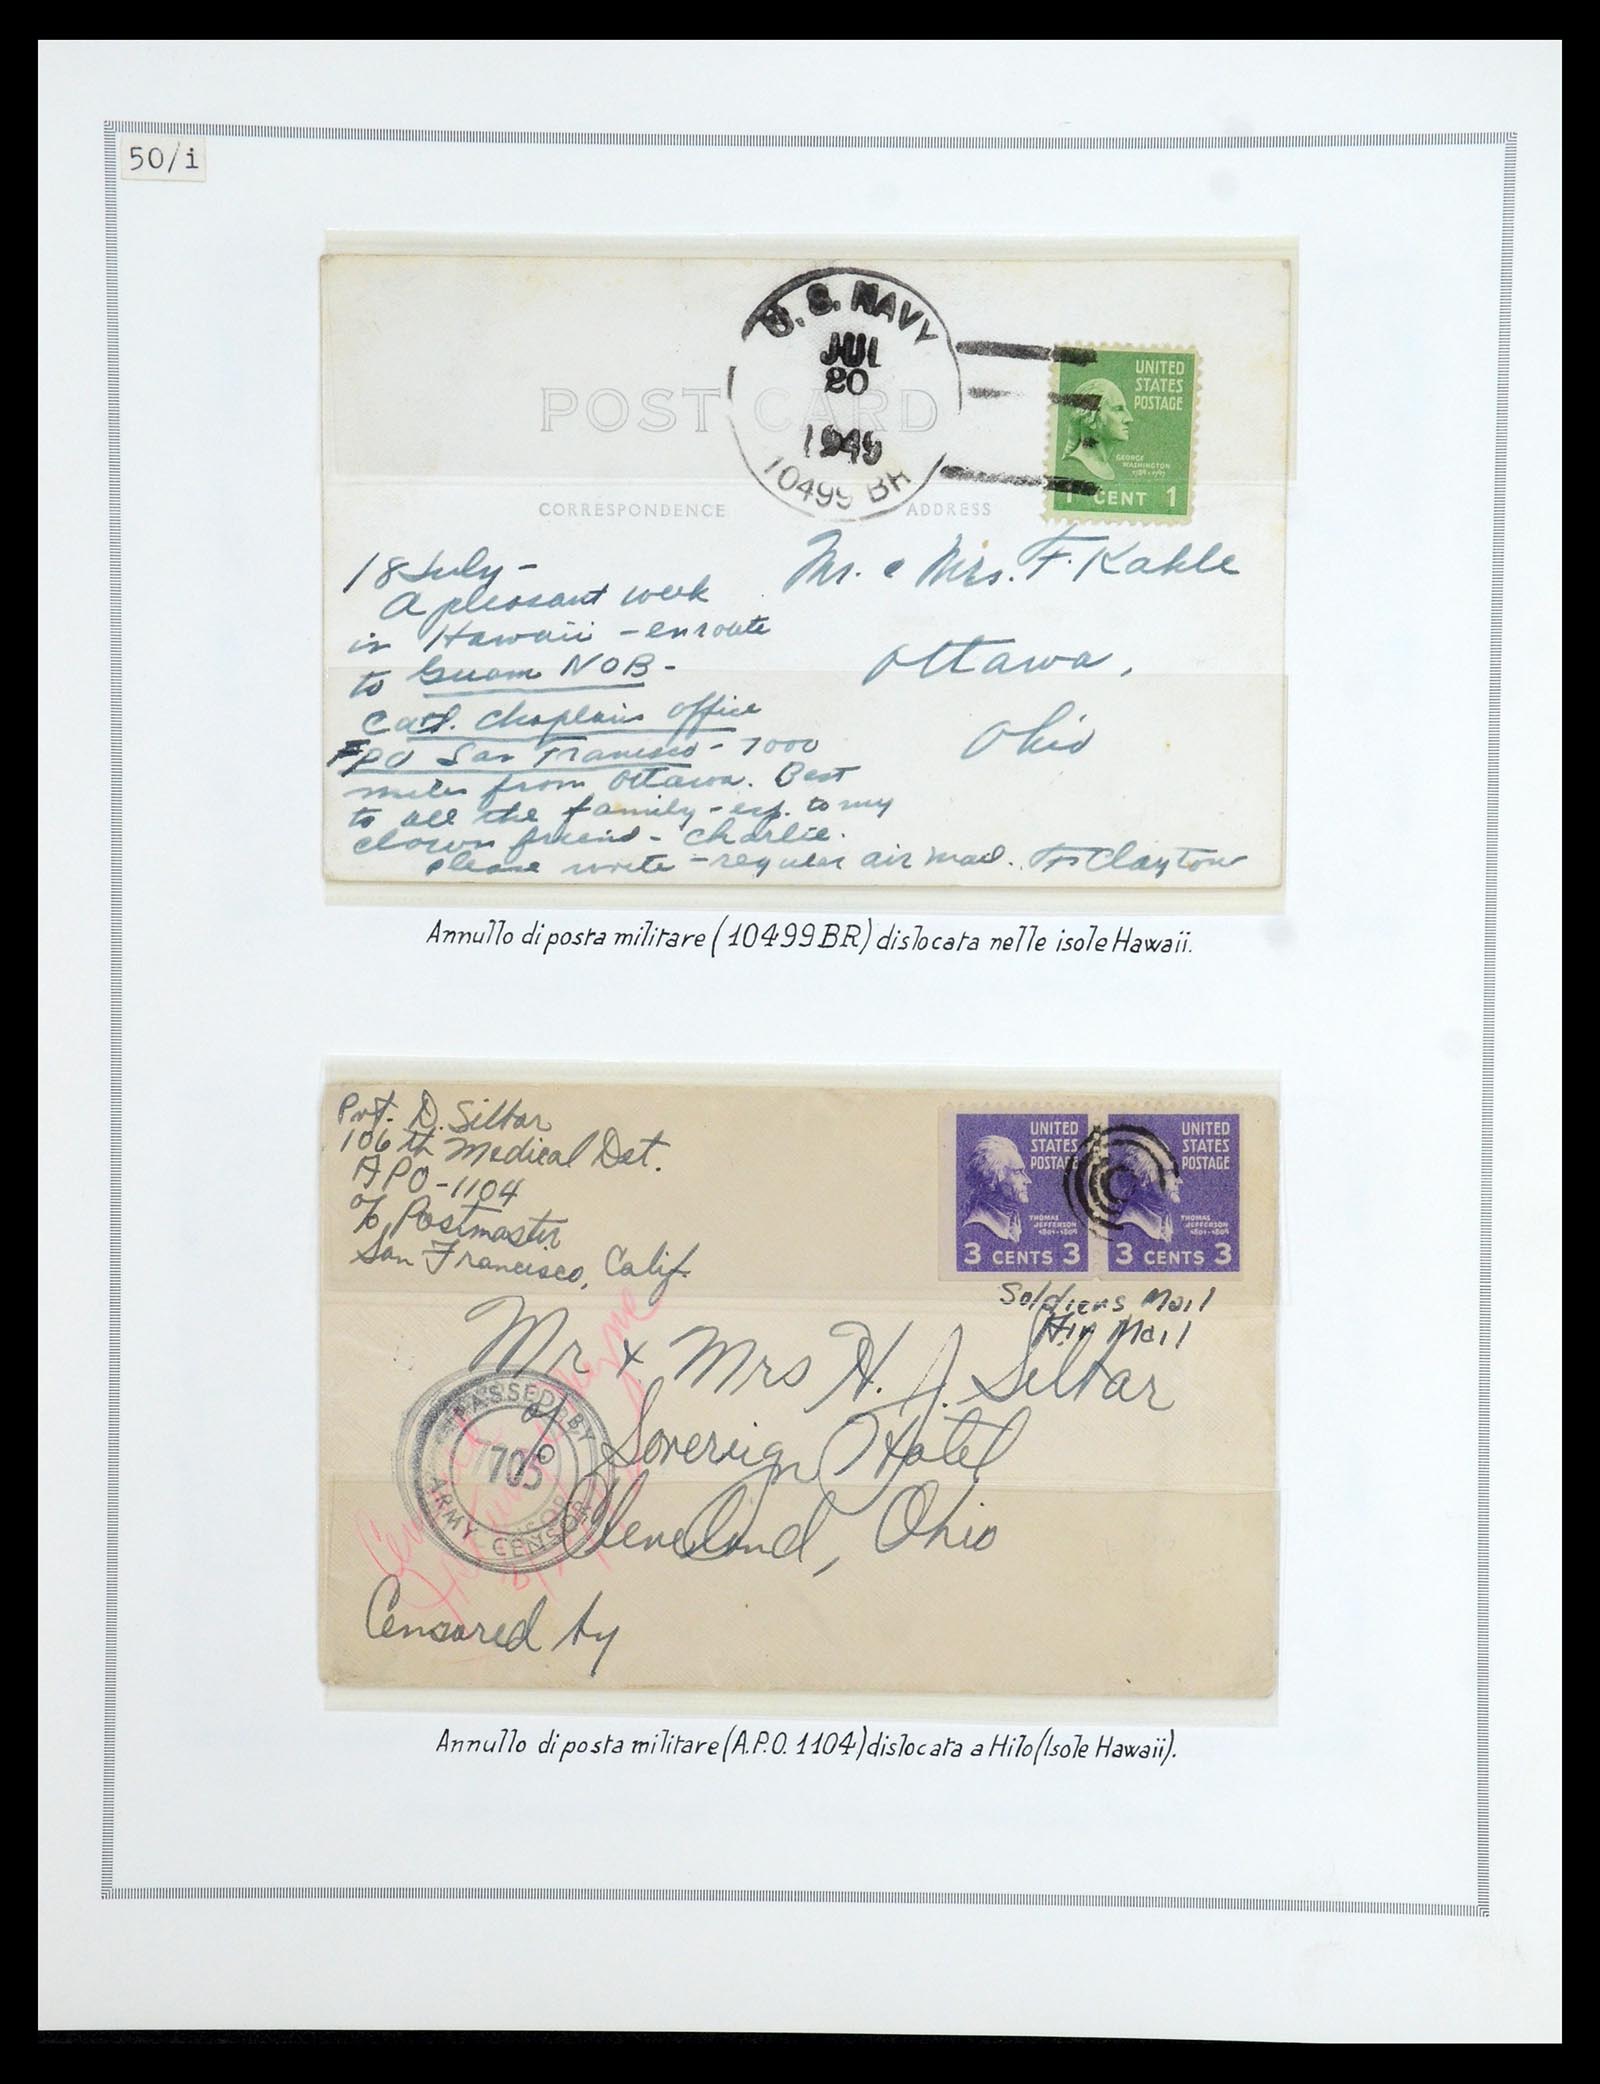 50/i
U.S. NAVY
JUL
20
1949
10499 BR
UNITED
STATES
POSTAGE
GEORGE
WASHINGTON
1789-1797
1 CENT 1
POST CARD
CORRESPONDENCE
ADDRESS
18 July -
A pleasant week
in Hawaii - enroute
to Guam NOB -
Cath. Chaplains Office
FPO San Francisco - 7000
miles from Ottawa. Best
to all the family - esp. to my
clown friend - Charlie.
please write - regular air mail. Fr Clayton
Mr. & Mrs. F. Kahle
Ottawa,
Ohio
Annullo di posta militare (10499 BR) dislocata nelle isole Hawaii.
Pvt. D. Silbar
106th Medical Det.
APO-1104
c/o Postmaster
San Francisco, Calif.
UNITED
STATES
POSTAGE
THOMAS
JEFFERSON
1801-1809
3 CENTS 3
UNITED
STATES
POSTAGE
THOMAS
JEFFERSON
1801-1809
3 CENTS 3
Soldiers Mail
Air Mail
Mr & Mrs H. J. Silbar
c/o Sovereign Hotel
Cleveland, Ohio
PASSED BY
ARMY CENSOR
Censored by
Annullo di posta militare (A.P.O. 1104) dislocata a Hilo (Isole Hawaii).